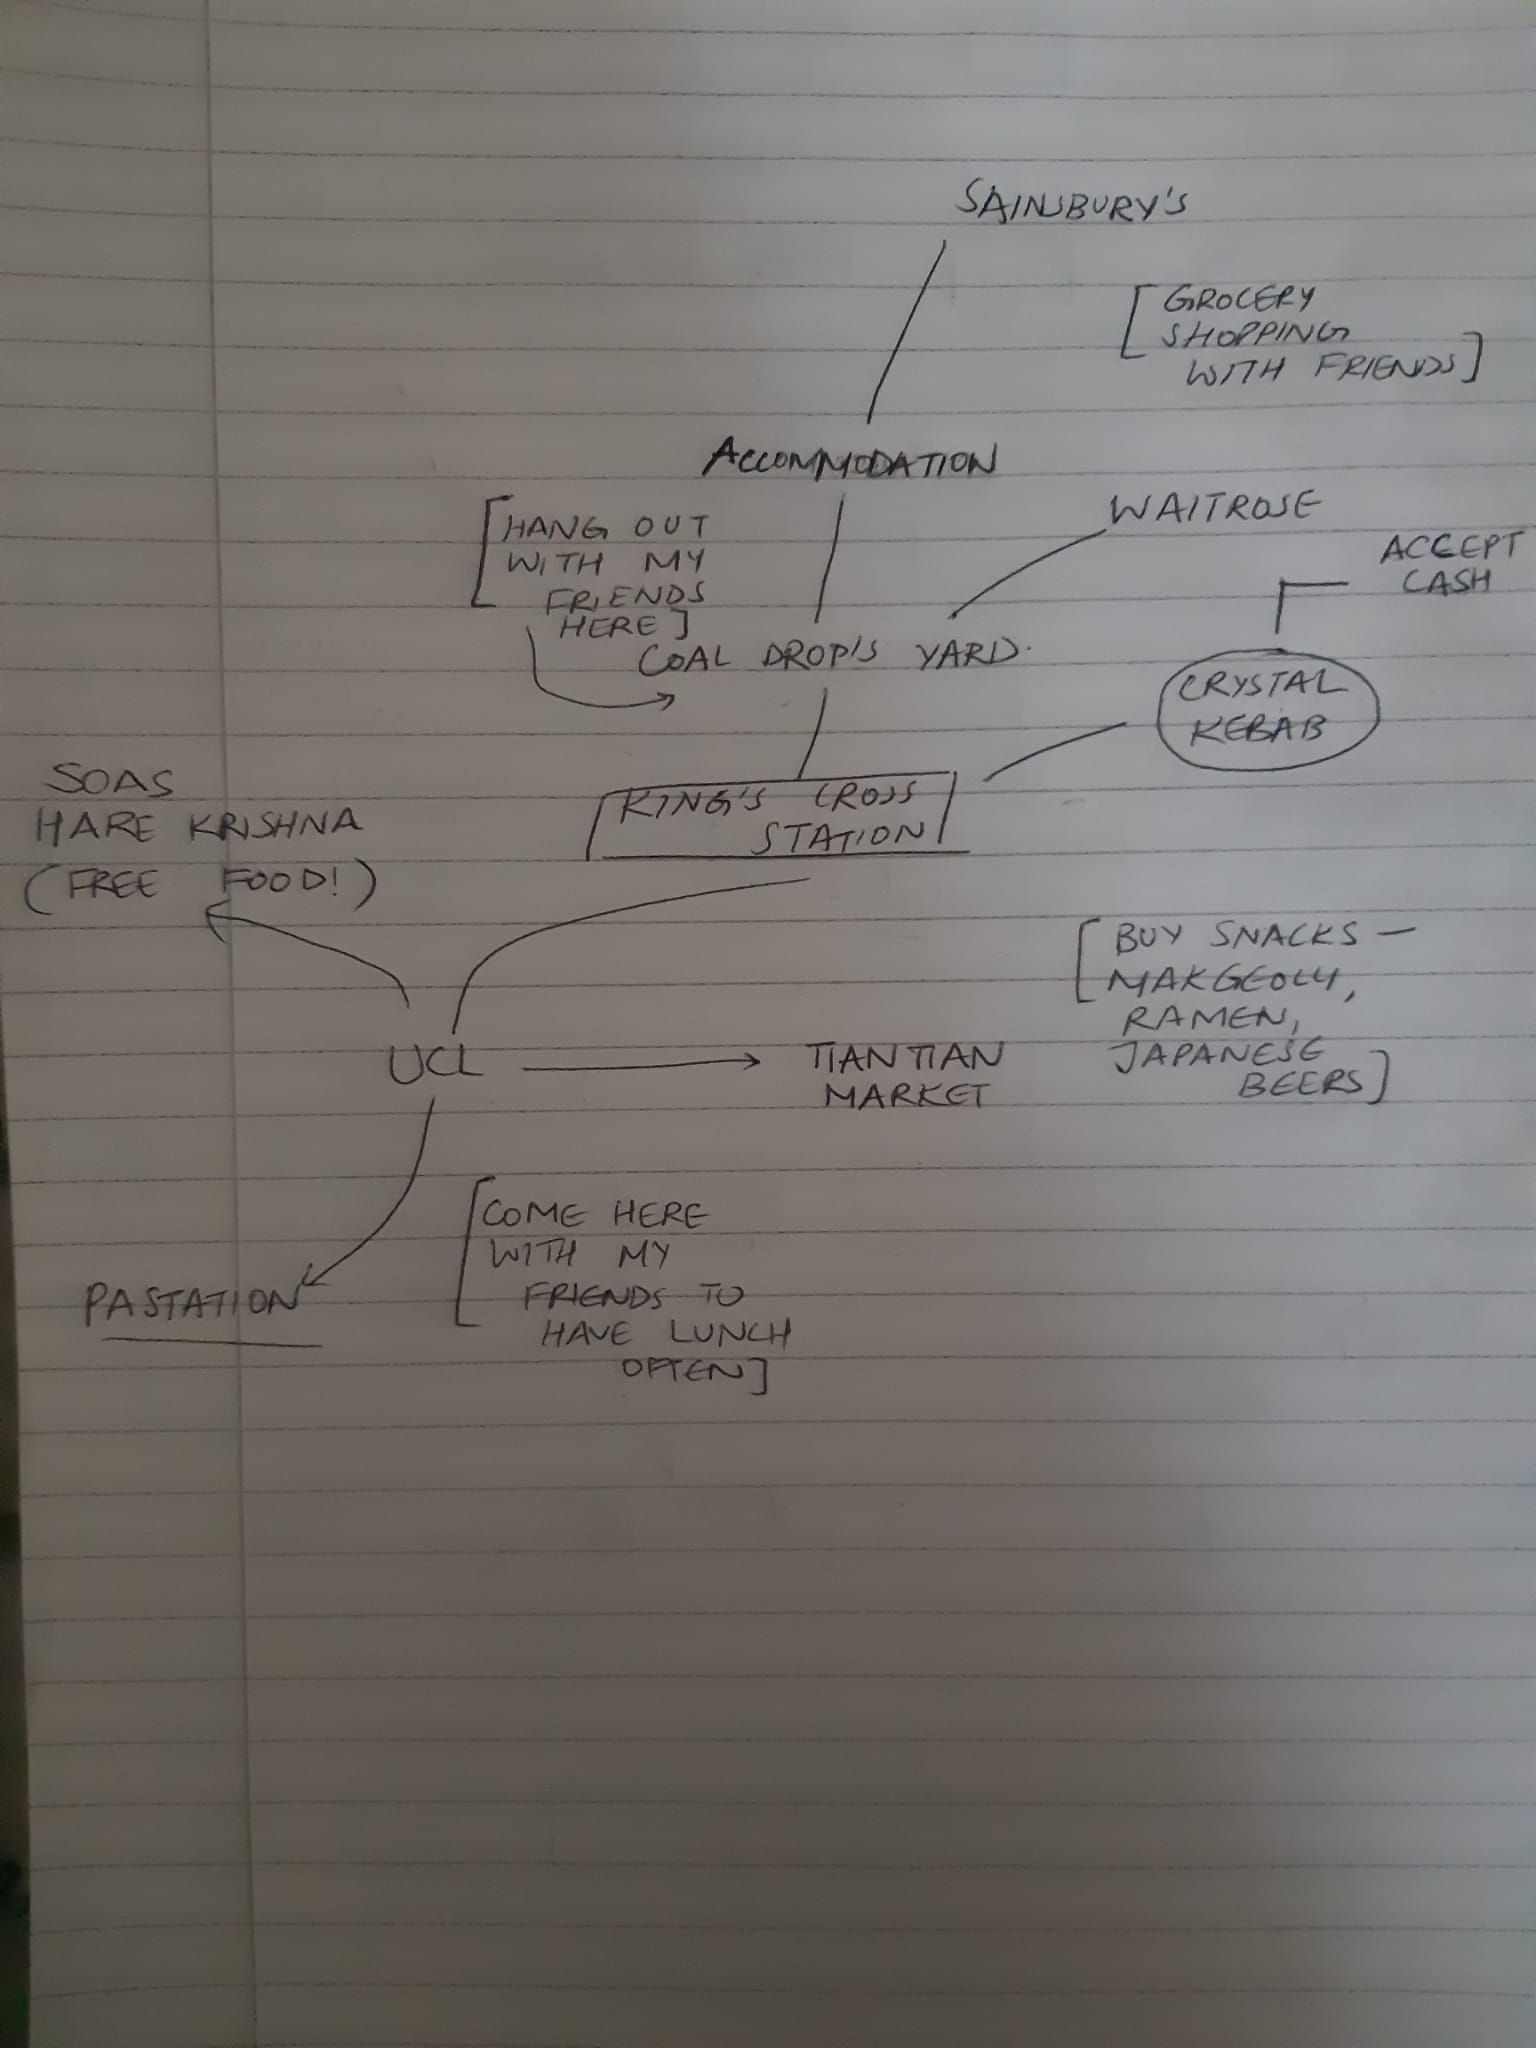 SAINSBURY'S
[GROCERY
SHOPPING
WITH FRIENDS]
ACCOMMODATION
WAITROSE
[HANG OUT
WITH MY
FRIENDS
HERE]
ACCEPT
CASH
COAL DROP'S YARD.
CRYSTAL
KEBAB
KING'S CROSS
STATION
SOAS
HARE KRISHNA
(FREE FOOD!)
[BUY SNACKS —
MAKGEOLLY,
RAMEN,
JAPANESE
BEERS]
UCL
TIAN TIAN
MARKET
[COME HERE
WITH MY
FRIENDS TO
HAVE LUNCH
OFTEN]
PASTATION